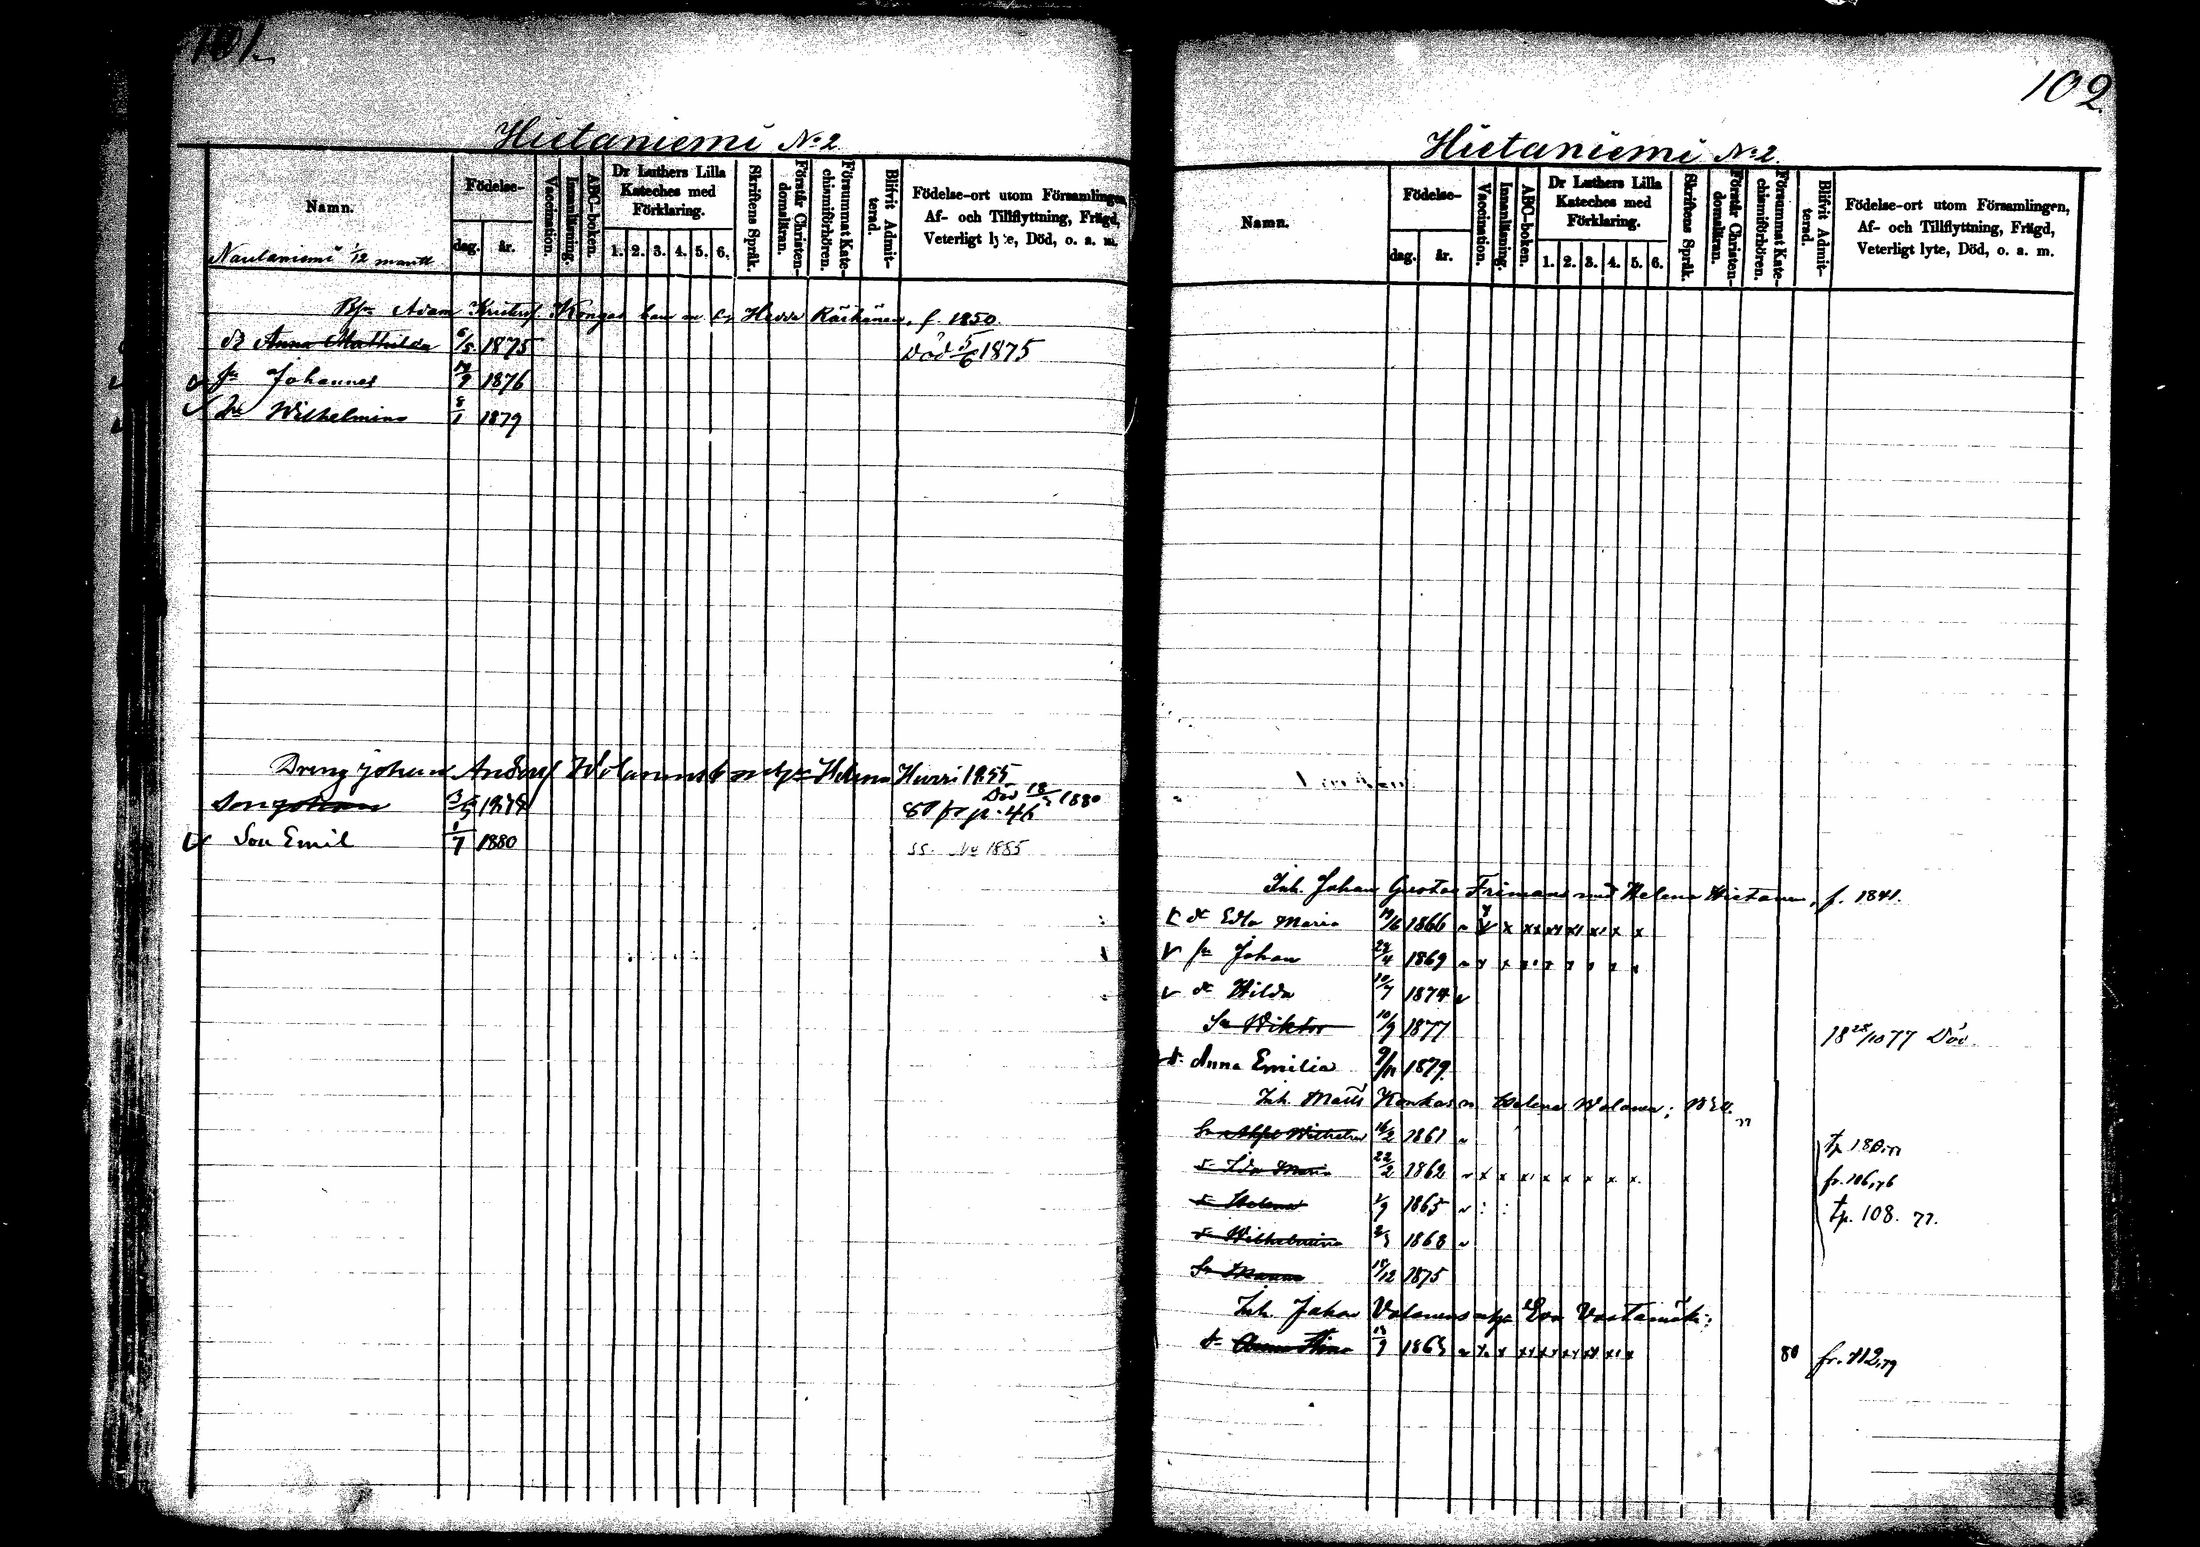 101.
Hietaniemi No 2
Namn.
Födelse-
dag.
år.
Vaccination.
Innanläsning.
ABC-boken.
Dr Luthers Lilla Kateches med Förklaring.
1. 2. 3. 4. 5. 6.
Skriftens Språk.
Förstår Christendomsläran.
Försummat Katechismiförhören.
Blifvit Admitterad.
Födelse-ort utom Församlingen,
Af- och Tillflyttning, Frägd,
Veterligt lyte, Död, o. a. m.
Naulaniemi 1/12 mantl
Adam Kristof Kongas Hedda Räihänen, f. 1850.
dr Anna Mathilda 6/5 1875 död 5/6 1875
sn Johannes 1876
Wilhelmina 8/1 1879
Dreng Johan Andersf Wolannen Helena Hurri 1855
Son Johan 1878 Död 18/ 1880
80 fr p. 46
Son Emil 1/7 1880 1885
102
Hietaniemi No 2.
Namn.
Födelse-
dag.
år.
Vaccination.
Innanläsning.
ABC-boken.
Dr Luthers Lilla Kateches med Förklaring.
1. 2. 3. 4. 5. 6.
Skriftens Språk.
Förstår Christendomsläran.
Försummat Katechismiförhören.
Blifvit Admitterad.
Födelse-ort utom Församlingen,
Af- och Tillflyttning, Frägd,
Veterligt lyte, Död, o. a. m.
Inh. Johan Gustaf Friman med Helena Hietanen, f. 1841.
dr Edla Maria 19/6 1866
sn Johan 1869
dr Hilda 10/7 1874
Sn Wiktor 10/9 1877 18 28/10 77 Död
d. Anna Emilia 1879.
Inh. Matts Konkas Helena Wolanen;
Sn Wilhelm 16/2 1861 tp 180
d. Ida Maria 22/2 1862 fr. 106,76
d. Helena 1865 tp. 108. 77.
d. Wilhelmina 1868
Sn Manne 18/12 1875
Inh. Johan Volanens Eva Vastamäki:
d. Anna Stina 1863 80 fr. 112,79